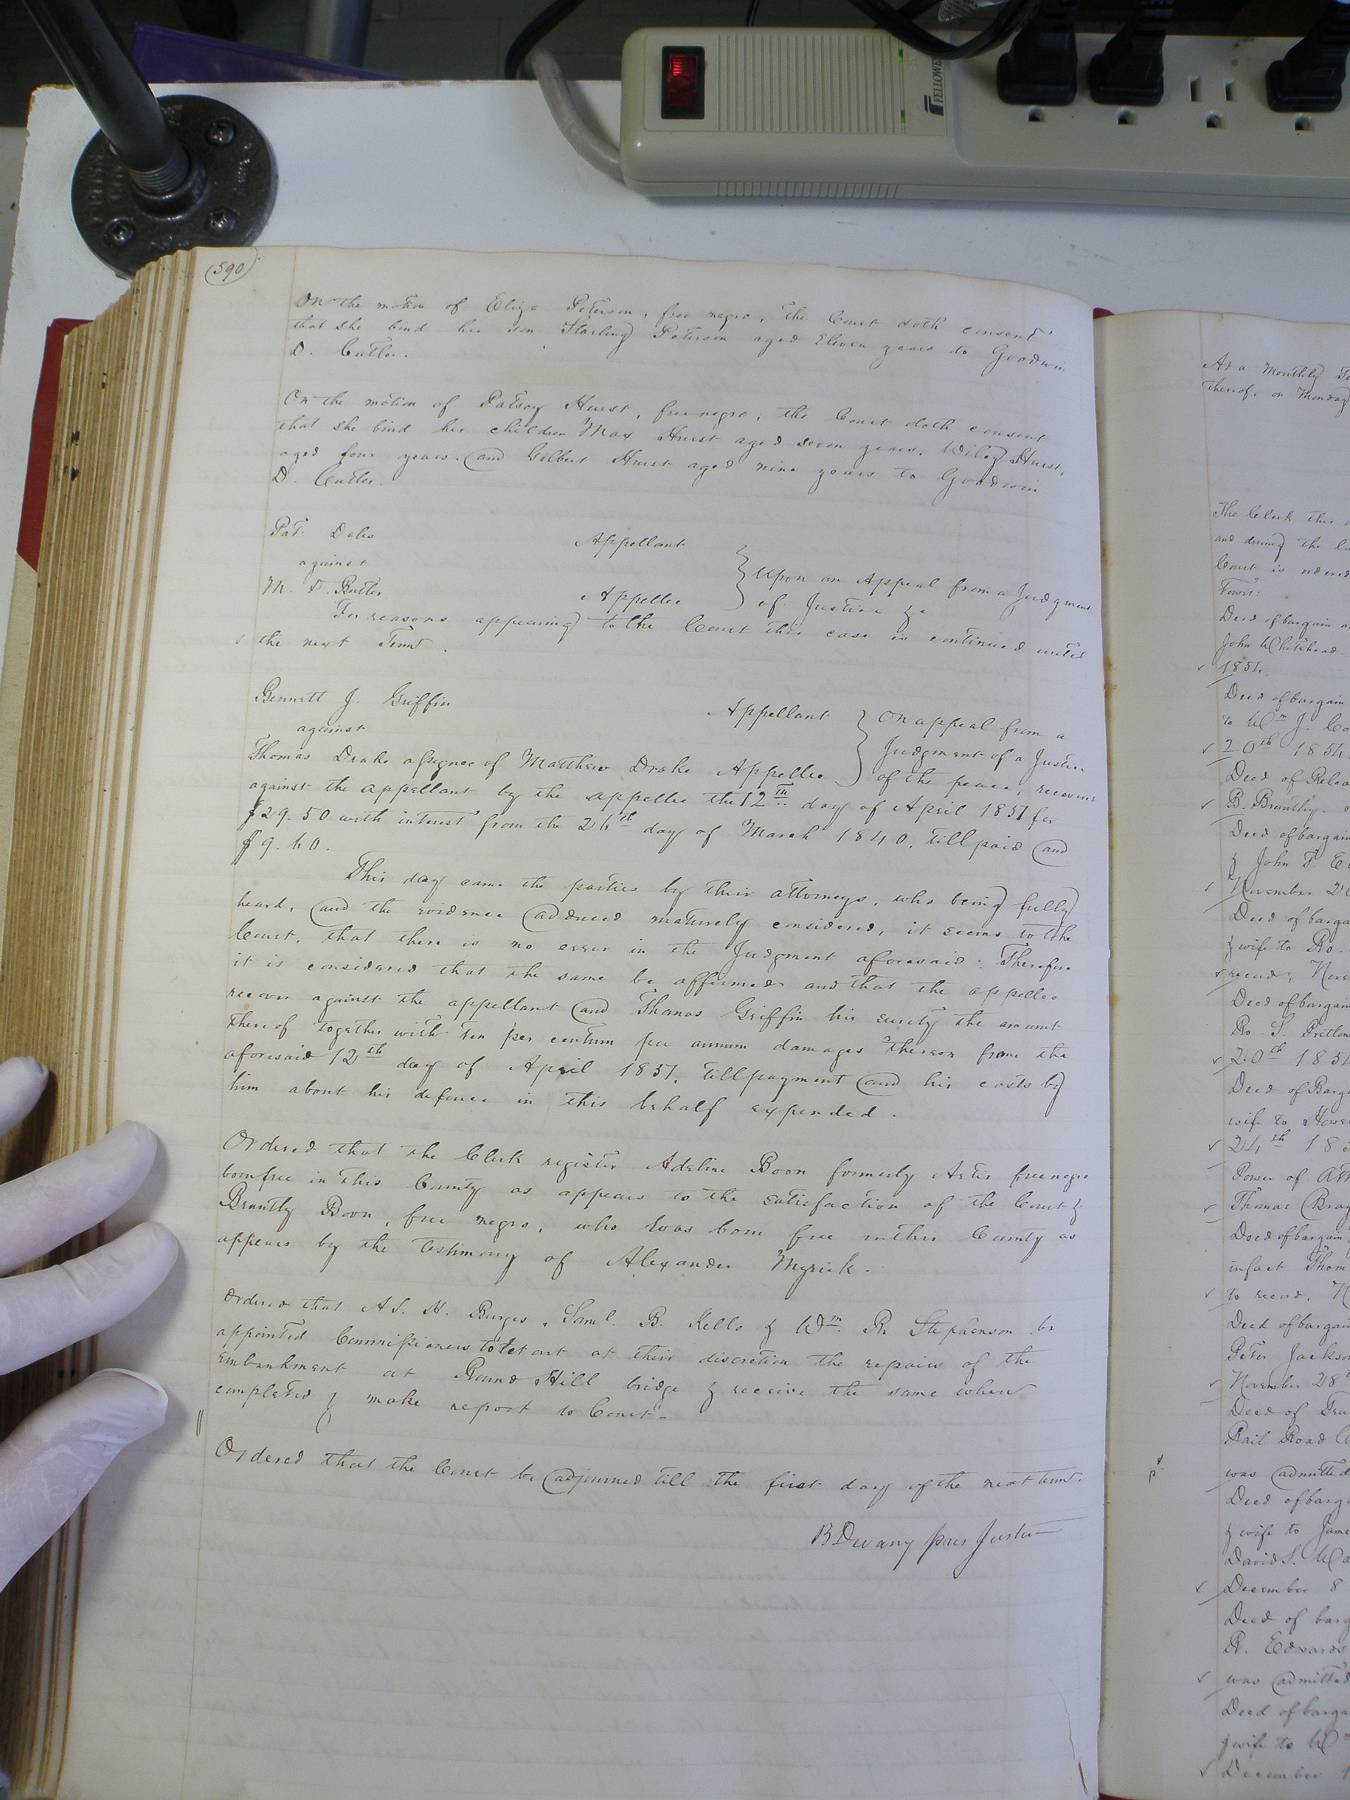 FELLOWES
590
On the motion of Eliza Peterson, free negro, the Court doth consent
that she bind her son Starling Peterson aged Eleven years to Goodwin
D. Cutler.
On the motion of Patsey Hurst, free negro, the Court doth consent
that she bind her children Max Hurst aged seven years, Wiley Hurst,
aged four years, and Gilbert Hurst aged nine years to Goodwin
D. Cutler.
Pat. Dales Appellant
against } Upon an Appeal from a Judgment
M. D. Butler Appellee of Justice &c
For reasons appearing to the Court this case is continued until
the next Term.
Bennett J. Griffin Appellant } On appeal from a
against Judgment of a Justice
Thomas Drake assignee of Matthew Drake Appellee of the peace, recover
against the appellant by the appellee the 12th day of April 1851 for
$29.50 with interest from the 24th day of March 1840, till paid and
$9.60.
This day came the parties by their attorneys, who being fully
heard, and the evidence adduced maturely considered, it seems to the
Court, that there is no error in the Judgment aforesaid: Therefore
it is considered that the same be affirmed and that the appellee
recover against the appellant and Thomas Griffin his surety the amount
thereof together with ten per centum per annum damages thereon from the
aforesaid 12th day of April 1851, till payment and his costs by
him about his defence in this behalf expended.
Ordered that the Clerk register Adeline Boon formerly Artis free negro
born free in this County as appears to the satisfaction of the Court &
Brantly Boon, free negro, who was born free in this County as
appears by the testimony of Alexander Myrick.
Ordered that A. S. H. Burges, Saml. B. Kello & Wm. R. Stephenson be
appointed Commissioners to let out at their discretion the repairs of the
embankment at Round Hill bridge & receive the same when
completed & make report to Court.
Ordered that the Court be adjourned till the first day of the next term.
B Devany pres Justice
At a Monthly
thereof, on Monday
The Clerk this
and during the
Court is ordered
Towit:
Deed of bargain
John Whitehead
1851.
Deed of bargain
to Wm J.
20th 1851
Deed of Relea
B. Brantly.
Deed of bargain
& John T
November 2
Deed of barga
& wife to Ro.
record, Nov
Deed of bargain
Ro. S. Pretlow
20th 1851
Deed of Barg
wife to
24th 18
Power of Att
Thomas Brag
Deed of bargain
in fact Thom
to record, N
Deed of bargain
Peter Jackso
November 28
Deed of Tru
Rail Road C
was admitted
Deed of barg
& wife to Jame
David S. W
December 8
Deed of barg
R. Edwards
was admitted
Deed of barga
& wife to W
December 1